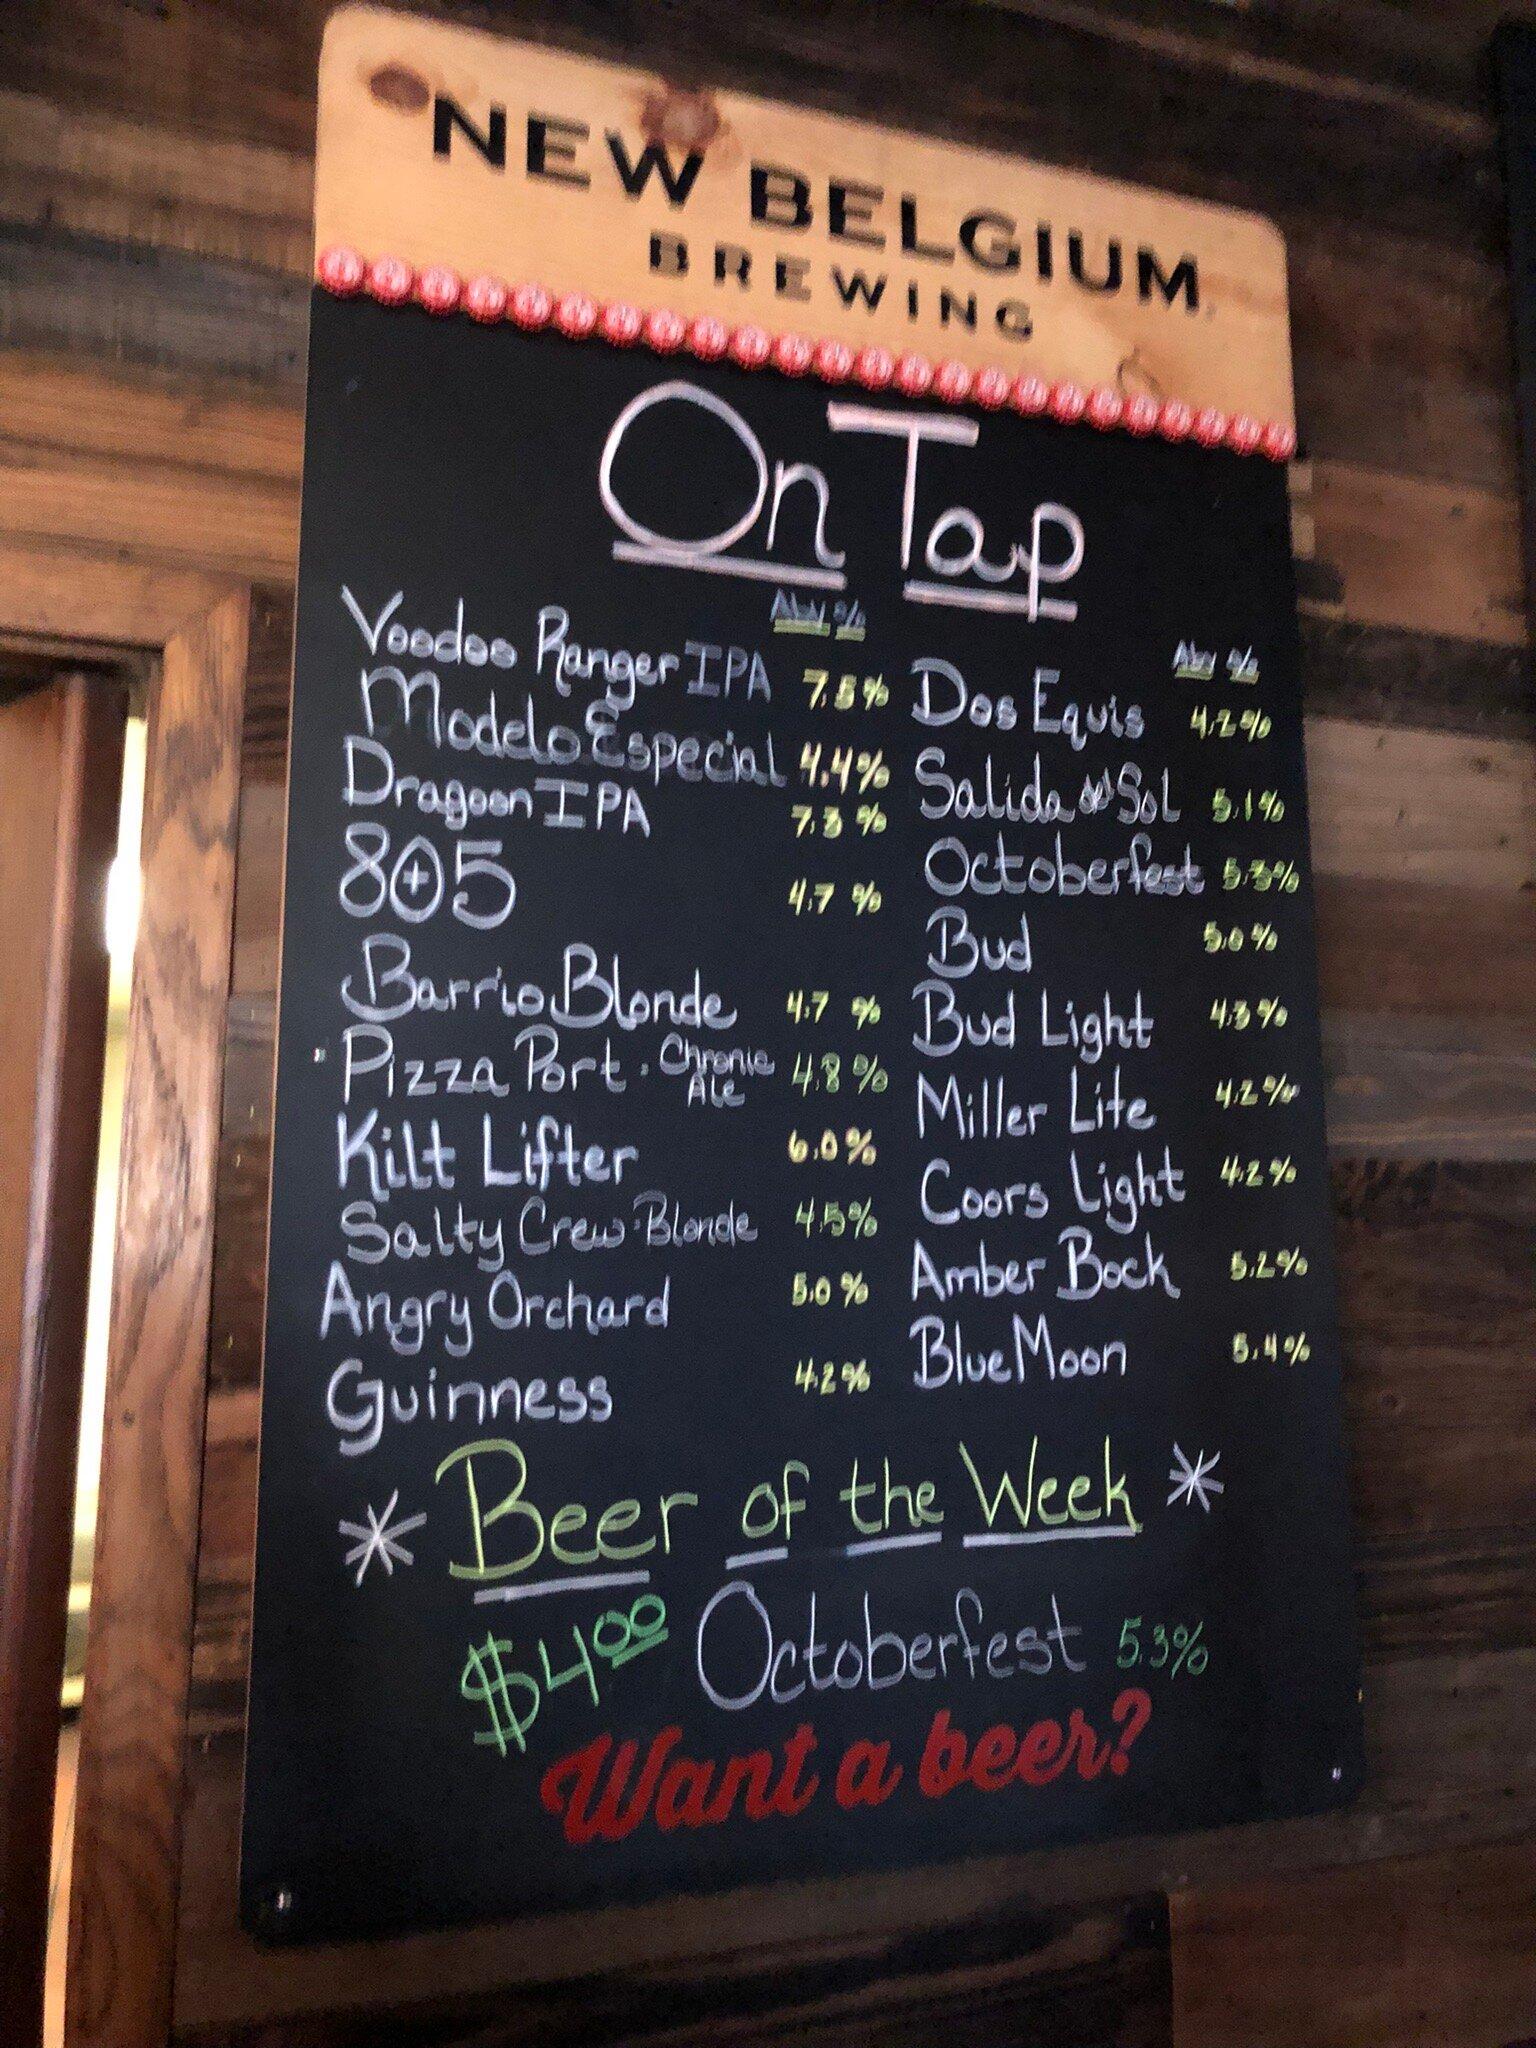 NEW BELGIUM
BREWING
On Tap
Abv %
Voodoo Ranger IPA 7.5%
Modelo Especial 4.4%
Dragoon IPA 7.3%
805 4.7%
Barrio Blonde 4.7%
Pizza Port - Chronic Ale 4.8%
Kilt Lifter 6.0%
Salty Crew - Blonde 4.5%
Angry Orchard 5.0%
Guinness 4.2%
Abv %
Dos Equis 4.2%
Salida del Sol 5.1%
Octoberfest 5.3%
Bud 5.0%
Bud Light 4.3%
Miller Lite 4.2%
Coors Light 4.2%
Amber Bock 5.2%
Blue Moon 5.4%
* Beer of the Week *
$4.00 Octoberfest 5.3%
Want a beer?